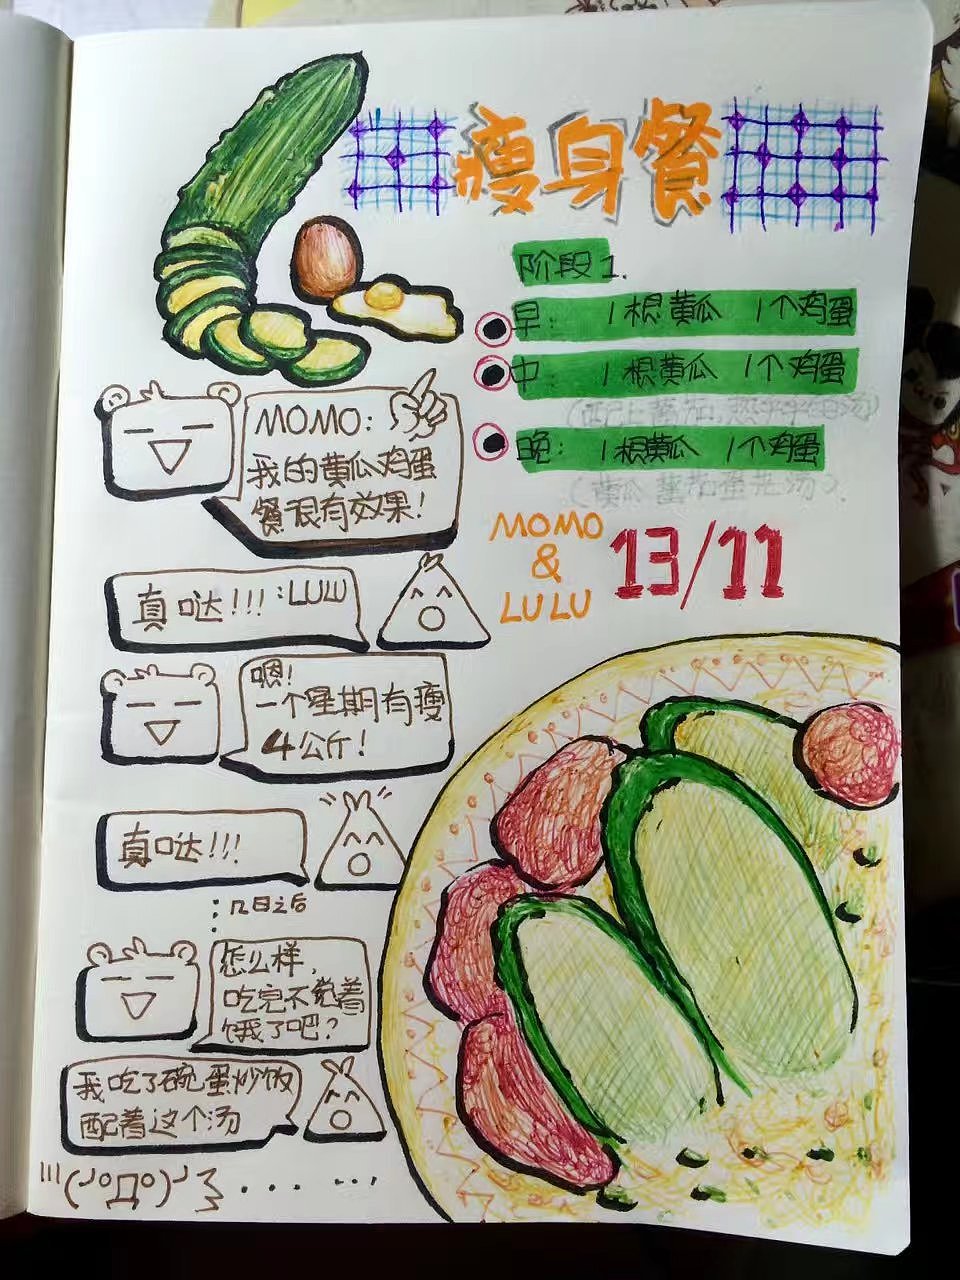 瘦身餐
阶段1.
早: 1根黄瓜 1个鸡蛋
中: 1根黄瓜 1个鸡蛋
(配上番茄,热乎乎的汤)
晚: 1根黄瓜 1个鸡蛋
(黄瓜番茄蛋花汤).
MOMO
&
LULU
13/11
MOMO:
我的黄瓜鸡蛋
餐很有效果!
真哒!!! :LULU
嗯!
一个星期有瘦
4公斤!
真哒!!!
几日之后
怎么样,
吃完不觉着
饿了吧?
我吃了碗蛋炒饭
配着这个汤